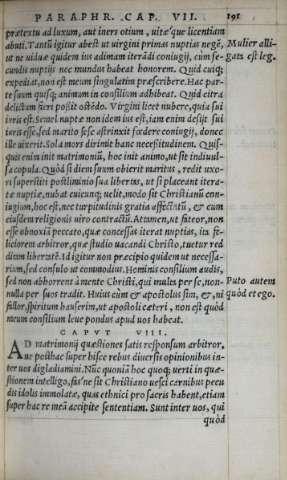 PARAPHR. CAP. VII. 191
prætextu ad luxum, aut iners otium, uitæ'que licentiam
abuti. Tantū igitur abest ut uirgini primas nuptias negē, Mulier alli-
ut ne uiduæ quidem ius adimam iterādi coniugij, cum se- gata est leg.
cundis nuptijs nec mundus habeat honorem. Quid cuiq;
expediat, non est meum singulatim præscribere. Hac par-
te suum quisq; animum in consilium adhibeat. Quid citra
delictum fieri possit ostēdo. Virgini licet nubere, quia sui
iuris est. Semel nuptæ non idem ius est, iam enim desijt sui
iuris esse, sed marito sese astrinxit fœdere coniugij, donec
ille uixerit. Sola mors dirimit hanc necessitudinem. Quis-
quis enim init matrimoniū, hoc init animo, ut sit indissol-
sa copula. Quòd si diem suum obierit maritus, redit uxo-
ri superstiti postliminio sua libertas, ut si placeat itera-
tæ nuptiæ, nubat cuicunq; uelit, modo sit Christianū con-
iugium, hoc est, nec turpitudinis gratia affectatū, & cum
eiusdem religionis uiro contractū. Attamen, ut fateor, non
esse obnoxiā peccato, quæ concessas iterat nuptias, ita fe-
liciorem arbitror, quæ studio uacandi Christo, tuetur red
ditam libertatē. Id igitur non præcipio quidem ut necessa-
rium, sed consulo ut commodius. Hominis consilium audis,
sed non abhorrens à mente Christi, qui multa per se, non- Puto autem
nulla per suos tradit. Huius cùm & apostolus sim, & ni quòd et ego.
fallor, spiritum hauserim, ut apostoli cæteri, non est quòd
meum consilium leue pondus apud uos habeat.
CAPVT VIII.
AD matrimonij quæstiones satis responsum arbitror,
ne posthac super hisce rebus diuersis opinionibus in-
ter uos digladiemini. Nūc quoniā hoc quoq; uerti in quæ-
stionem intelligo, fas'ne sit Christiano uesci carnibus pecu
dis idolis immolatæ, quas ethnici pro sacris habent, etiam
super hac re meā accipite sententiam. Sunt inter uos, qui
quòd